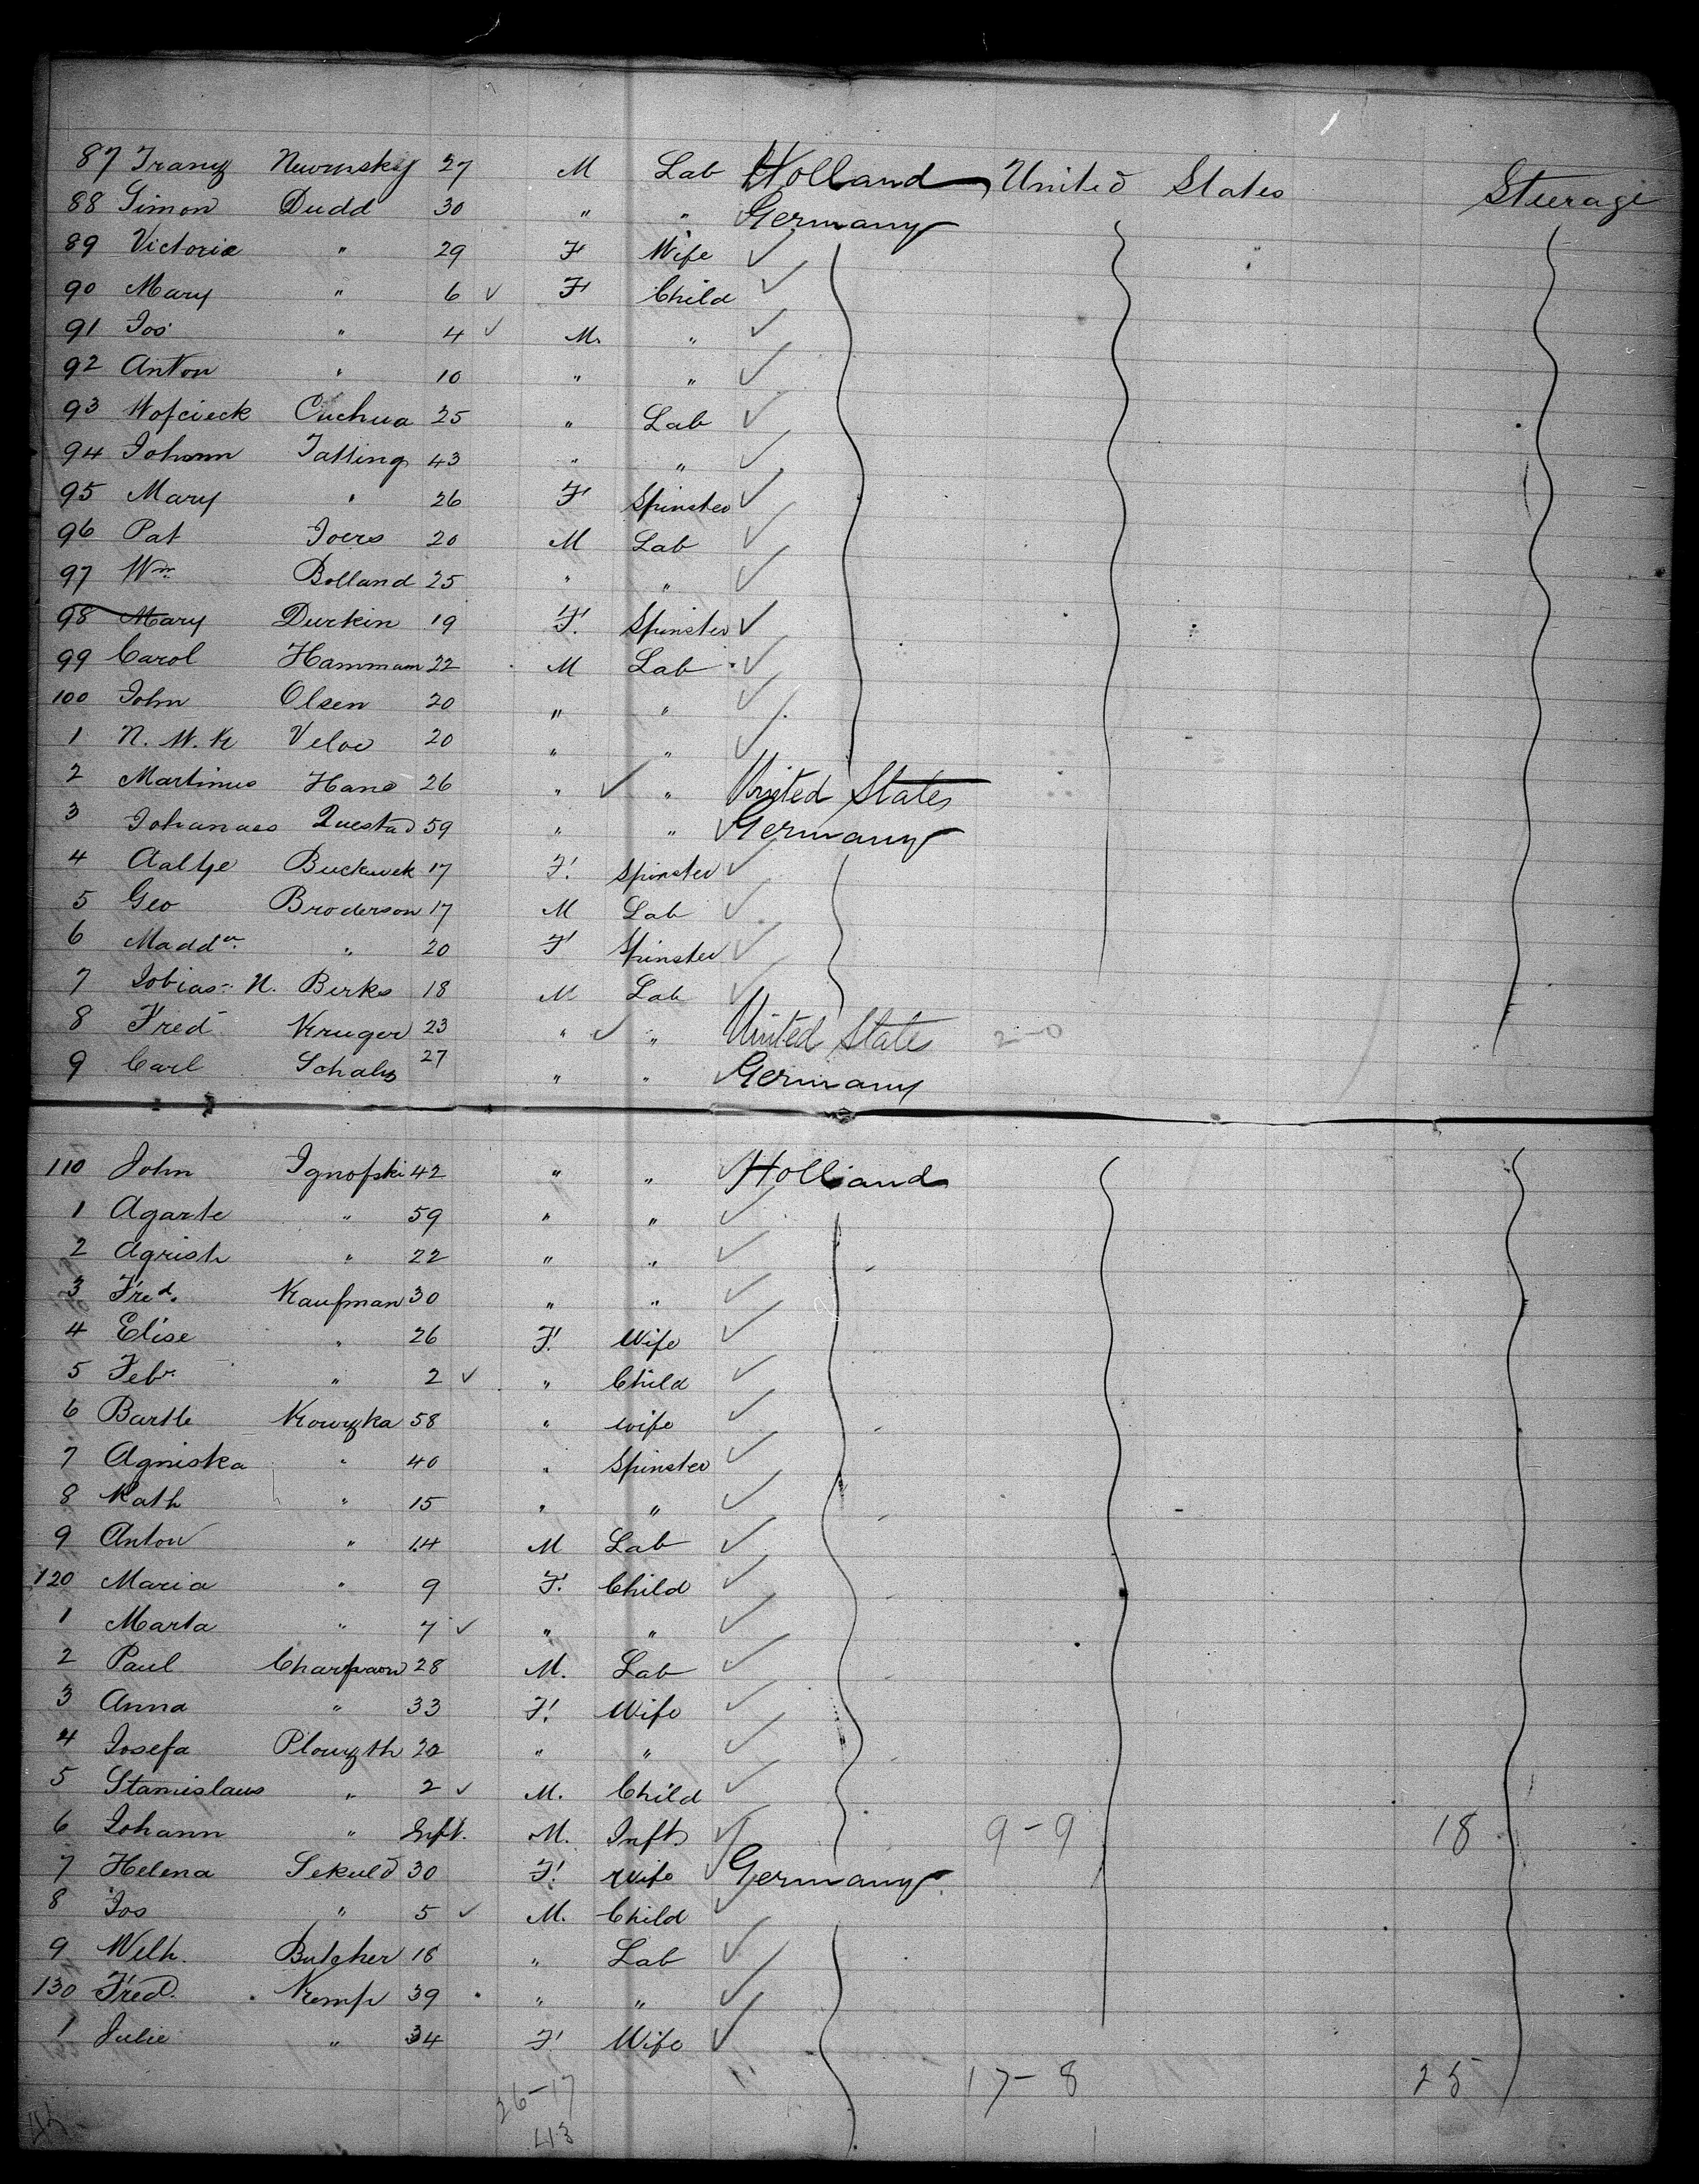 87 Franz Newrnsky 27 M Lab Holland United States Steerage
88 Simon Dudd 30 " " Germany
89 Victoria " 29 F Wife
90 Mary " 6 F Child
91 Jos " 4 M. "
92 Anton " 10 " "
93 Wofcieck Cuchua 25 " Lab
94 Johann Tatling 43 " "
95 Mary " 26 F Spinster
96 Pat Joers 20 M Lab
97 Wm Bolland 25 " "
98 Mary Durkin 19 F. Spinster
99 Carol Hammam 22 M Lab
100 John Olsen 20 " "
1 N. W. K Veloo 20 " "
2 Martinus Hans 26 " " United States
3 Johannes Questad 59 " " Germany
4 Aaltje 17 F. Spinster
5 Geo Broderson 17 M Lab
6 " 20 F Spinster
7 Tobias N. Berks 18 M Lab
8 Fred Kruger 23 " " United States 2-0
9 Carl Schalz 27 " " Germany
110 John Ignofski 42 " " Holland
1 Agarte " 59 " "
2 Agrish " 22 " "
3 Fred. Kaufman 30 " "
4 Elise " 26 F. Wife
5 Febr. " 2 " Child
6 Bartle Kowyzka 58 " wife
7 Agniska " 40 " Spinster
8 Kath " 15 " "
9 Anton " 14 M Lab
120 Maria " 9 F. Child
1 Marta " 7 " "
2 Paul 28 M. Lab
3 Anna " 33 F. Wife
4 Josefa Plowyth 22 " "
5 Stanislaus " 2 M. Child
6 Johann " Inft. M. Inft. 9-9 18
7 Helena Sekuld 30 F. wife Germany
8 Jos " 5 M. Child
9 Wilh. Butcher 16 " Lab
130 Fred. Kemp 39 " "
1 Julie " 34 F Wife
26-17 17-8 25
43